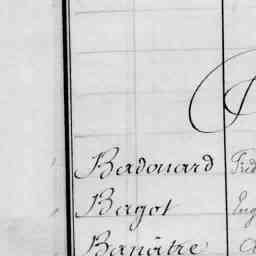 Badouard Fréd
Bagot Eug
Banâtre